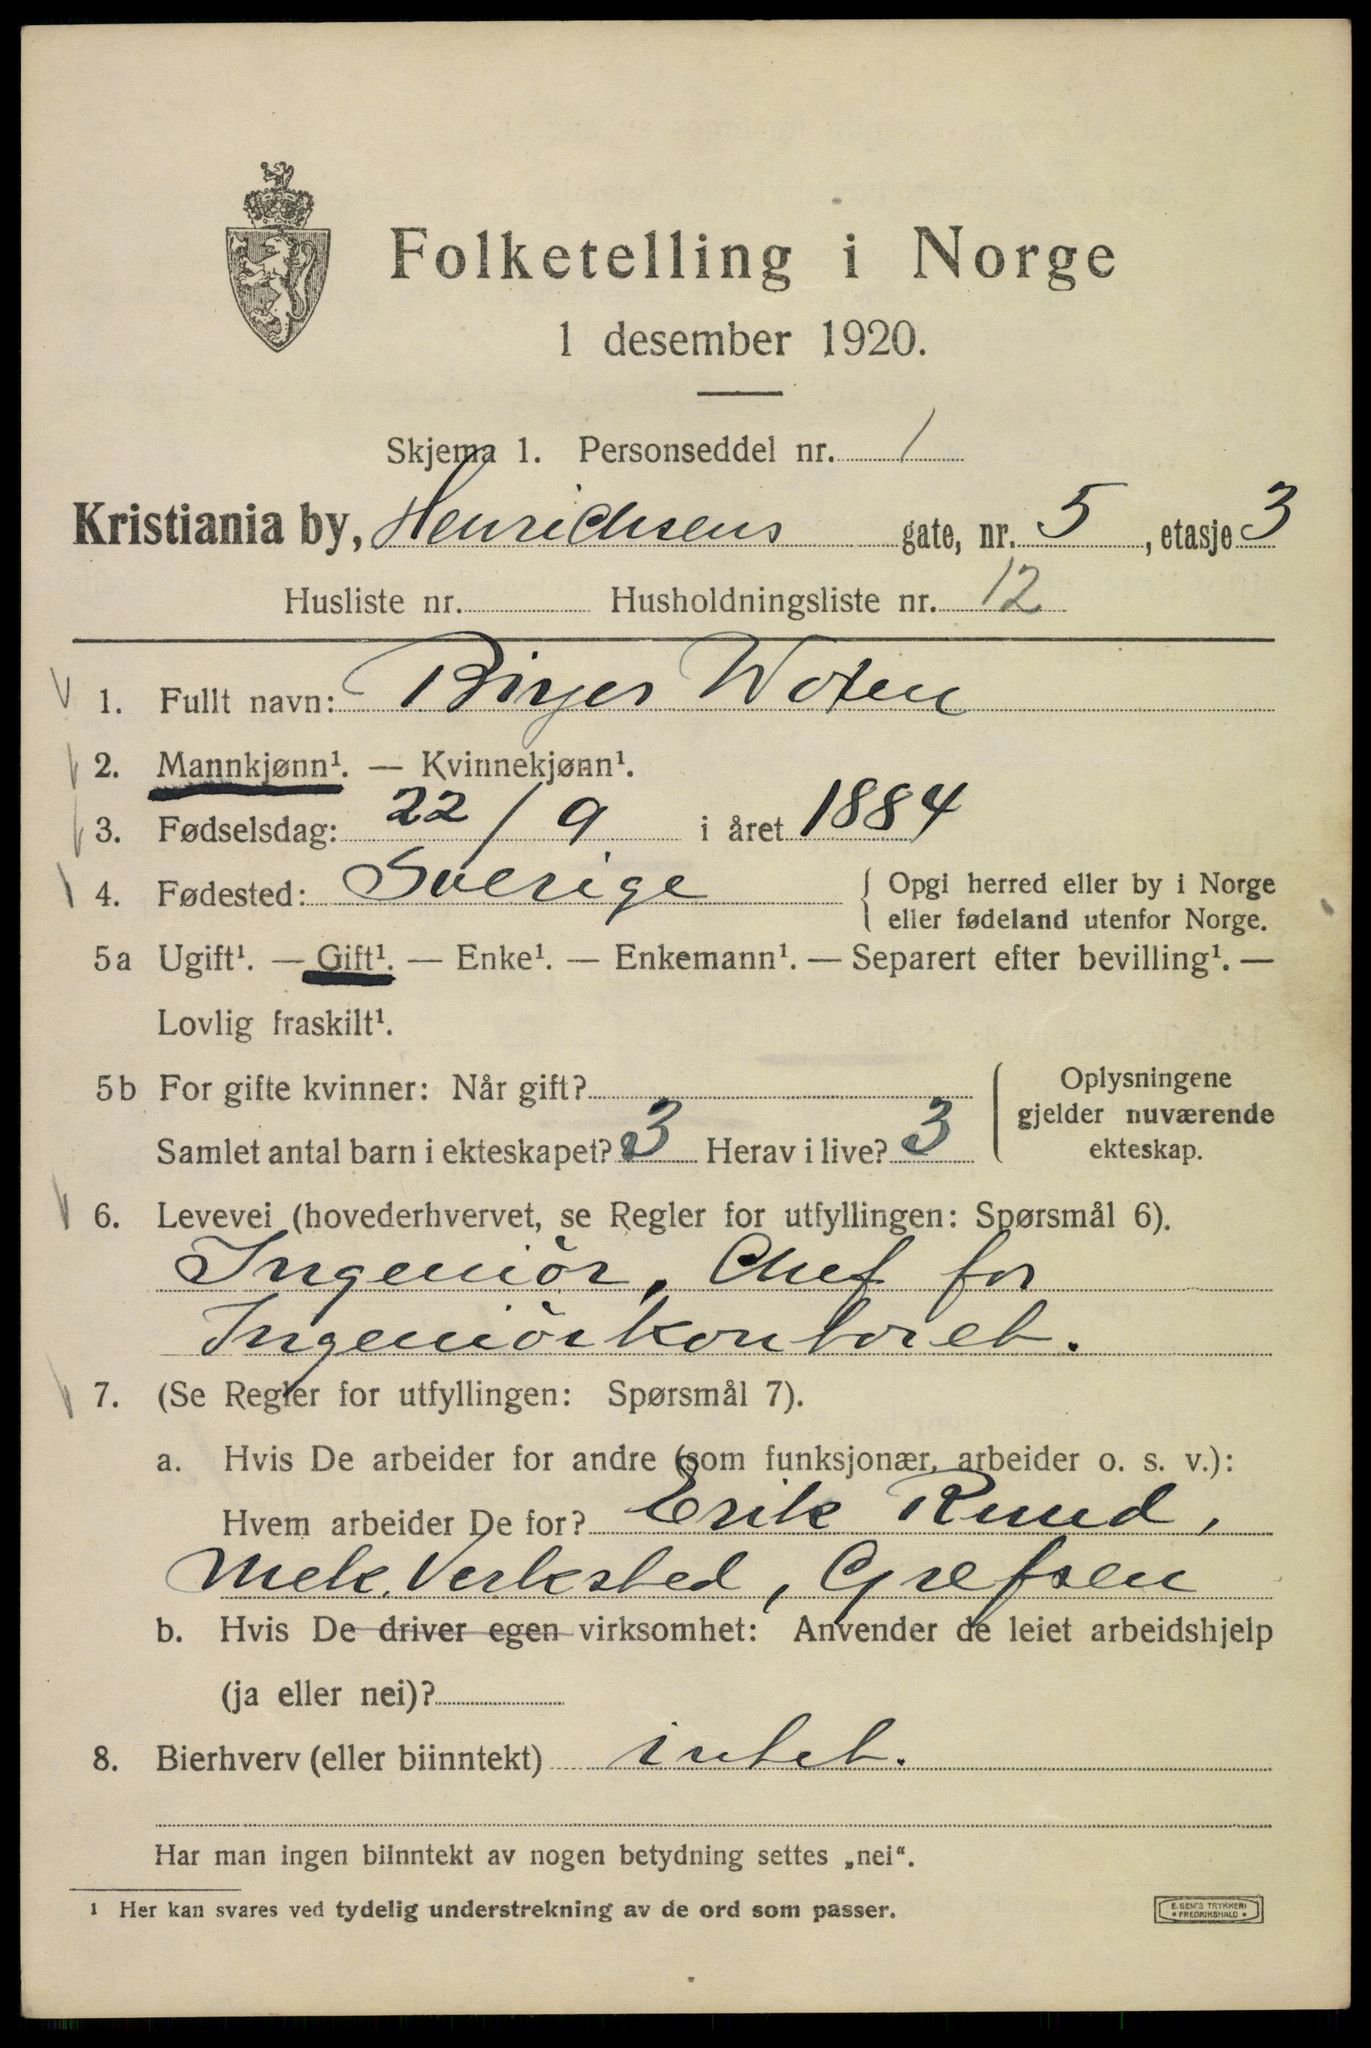 Folketelling i Norge
1 desember 1920.
Skjema 1. Personseddel nr. 1
Kristiania by, Henrichsens gate, nr. 5, etasje 3
Husliste nr. Husholdningsliste nr. 12
1. Fullt navn: Birger Woxen
2. Mannkjønn¹. — Kvinnekjønn¹.
3. Fødselsdag: 22/9 i året 1884
4. Fødested: Sverige { Opgi herred eller by i Norge
eller fødeland utenfor Norge.
5a Ugift¹. — Gift¹. — Enke¹. — Enkemann¹. — Separert efter bevilling¹. —
Lovlig fraskilt¹.
5b For gifte kvinner: Når gift? { Oplysningene
gjelder nuværende
Samlet antal barn i ekteskapet? 3 Herav i live? 3 ekteskap.
6. Levevei (hovederhvervet, se Regler for utfyllingen: Spørsmål 6).
Ingeniör, Chef for
Ingeniörkontoret.
7. (Se Regler for utfyllingen: Spørsmål 7).
a. Hvis De arbeider for andre (som funksjonær, arbeider o. s. v.):
Hvem arbeider De for? Erik Ruud,
Mek. Verksted, Grefsen
b. Hvis De driver egen virksomhet: Anvender de leiet arbeidshjelp
(ja eller nei)?
8. Bierhverv (eller biinntekt) intet.
Har man ingen biinntekt av nogen betydning settes „nei“.
¹ Her kan svares ved tydelig understrekning av de ord som passer.
E. SEM'S TRYKKERI
* FREDRIKSHALD *